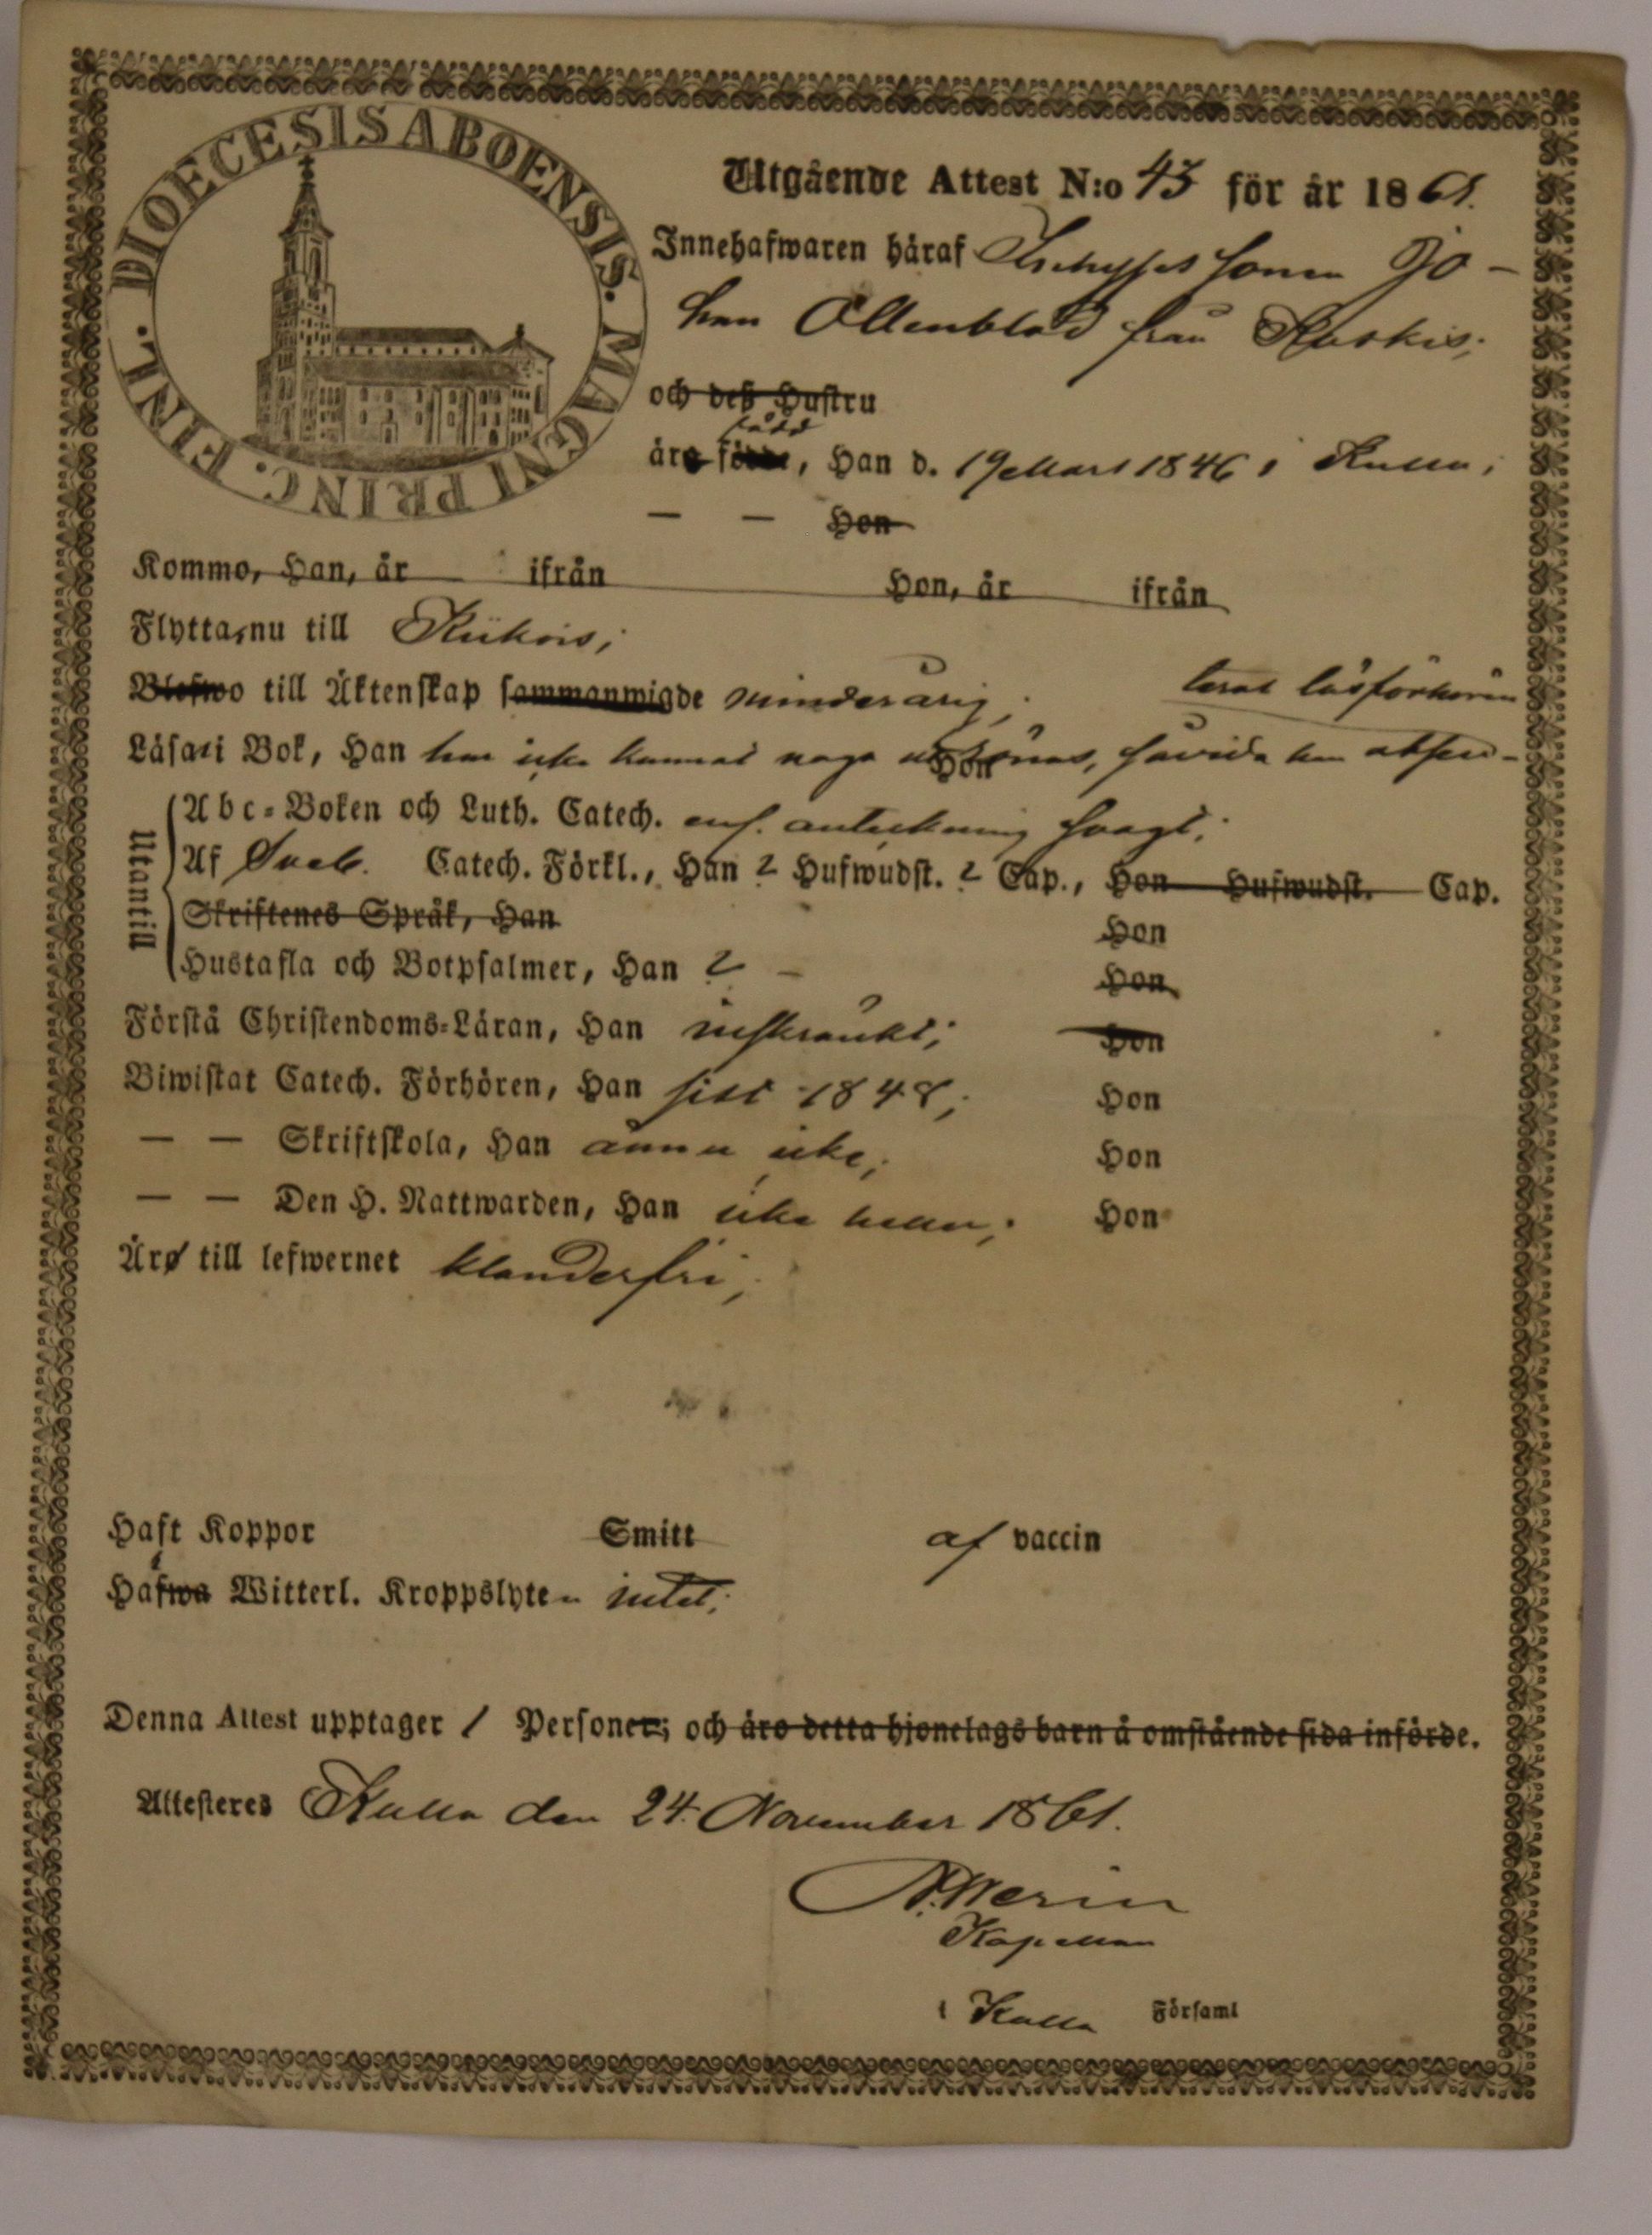 DIOECESIS ABOENSIS. MAGNI PRINC. FINL.
Utgående Attest N:o 43 för år 1861.
Innehafwaren häraf sonen Jo-
han Ollenblad från Kaskis;
och deß Hustru
född
äro födde, Han d. 19 Mars 1846 i Kulla;
— — Hon
Kommo, Han, år ifrån Hon, år ifrån
Flytta, nu till Kiikois;
Blefwo till Äktenskap sammanwigde minderårig; terat läsförhören
Läsa i Bok, Han har icke kunnat noga utrönas, Hon såvida han absen-
Utantill
Abc-Boken och Luth. Catech. enl. anteckning svagt;
Af Sveb. Catech. Förkl., Han 2 Hufwudst. 2 Cap., Hon Hufwudst. Cap.
Skriftenes Språk, Han Hon
Hustafla och Botpsalmer, Han 2 — Hon
Förstå Christendoms-Läran, Han inskränkt; Hon
Biwistat Catech. Förhören, Han sist 1848; Hon
— — Skriftskola, Han ännu icke; Hon
— — Den H. Nattwarden, Han icke heller; Hon
Äro till lefwernet klanderfri;
Haft Koppor Smitt af vaccin
Hafwa Witterl. Kroppslyten intet;
Denna Attest upptager 1 Personer; och äro detta hjonelags barn å omstående sida införde.
Attesteres Kulla den 24. November 1861.
Kapellan
i Kulla Församl